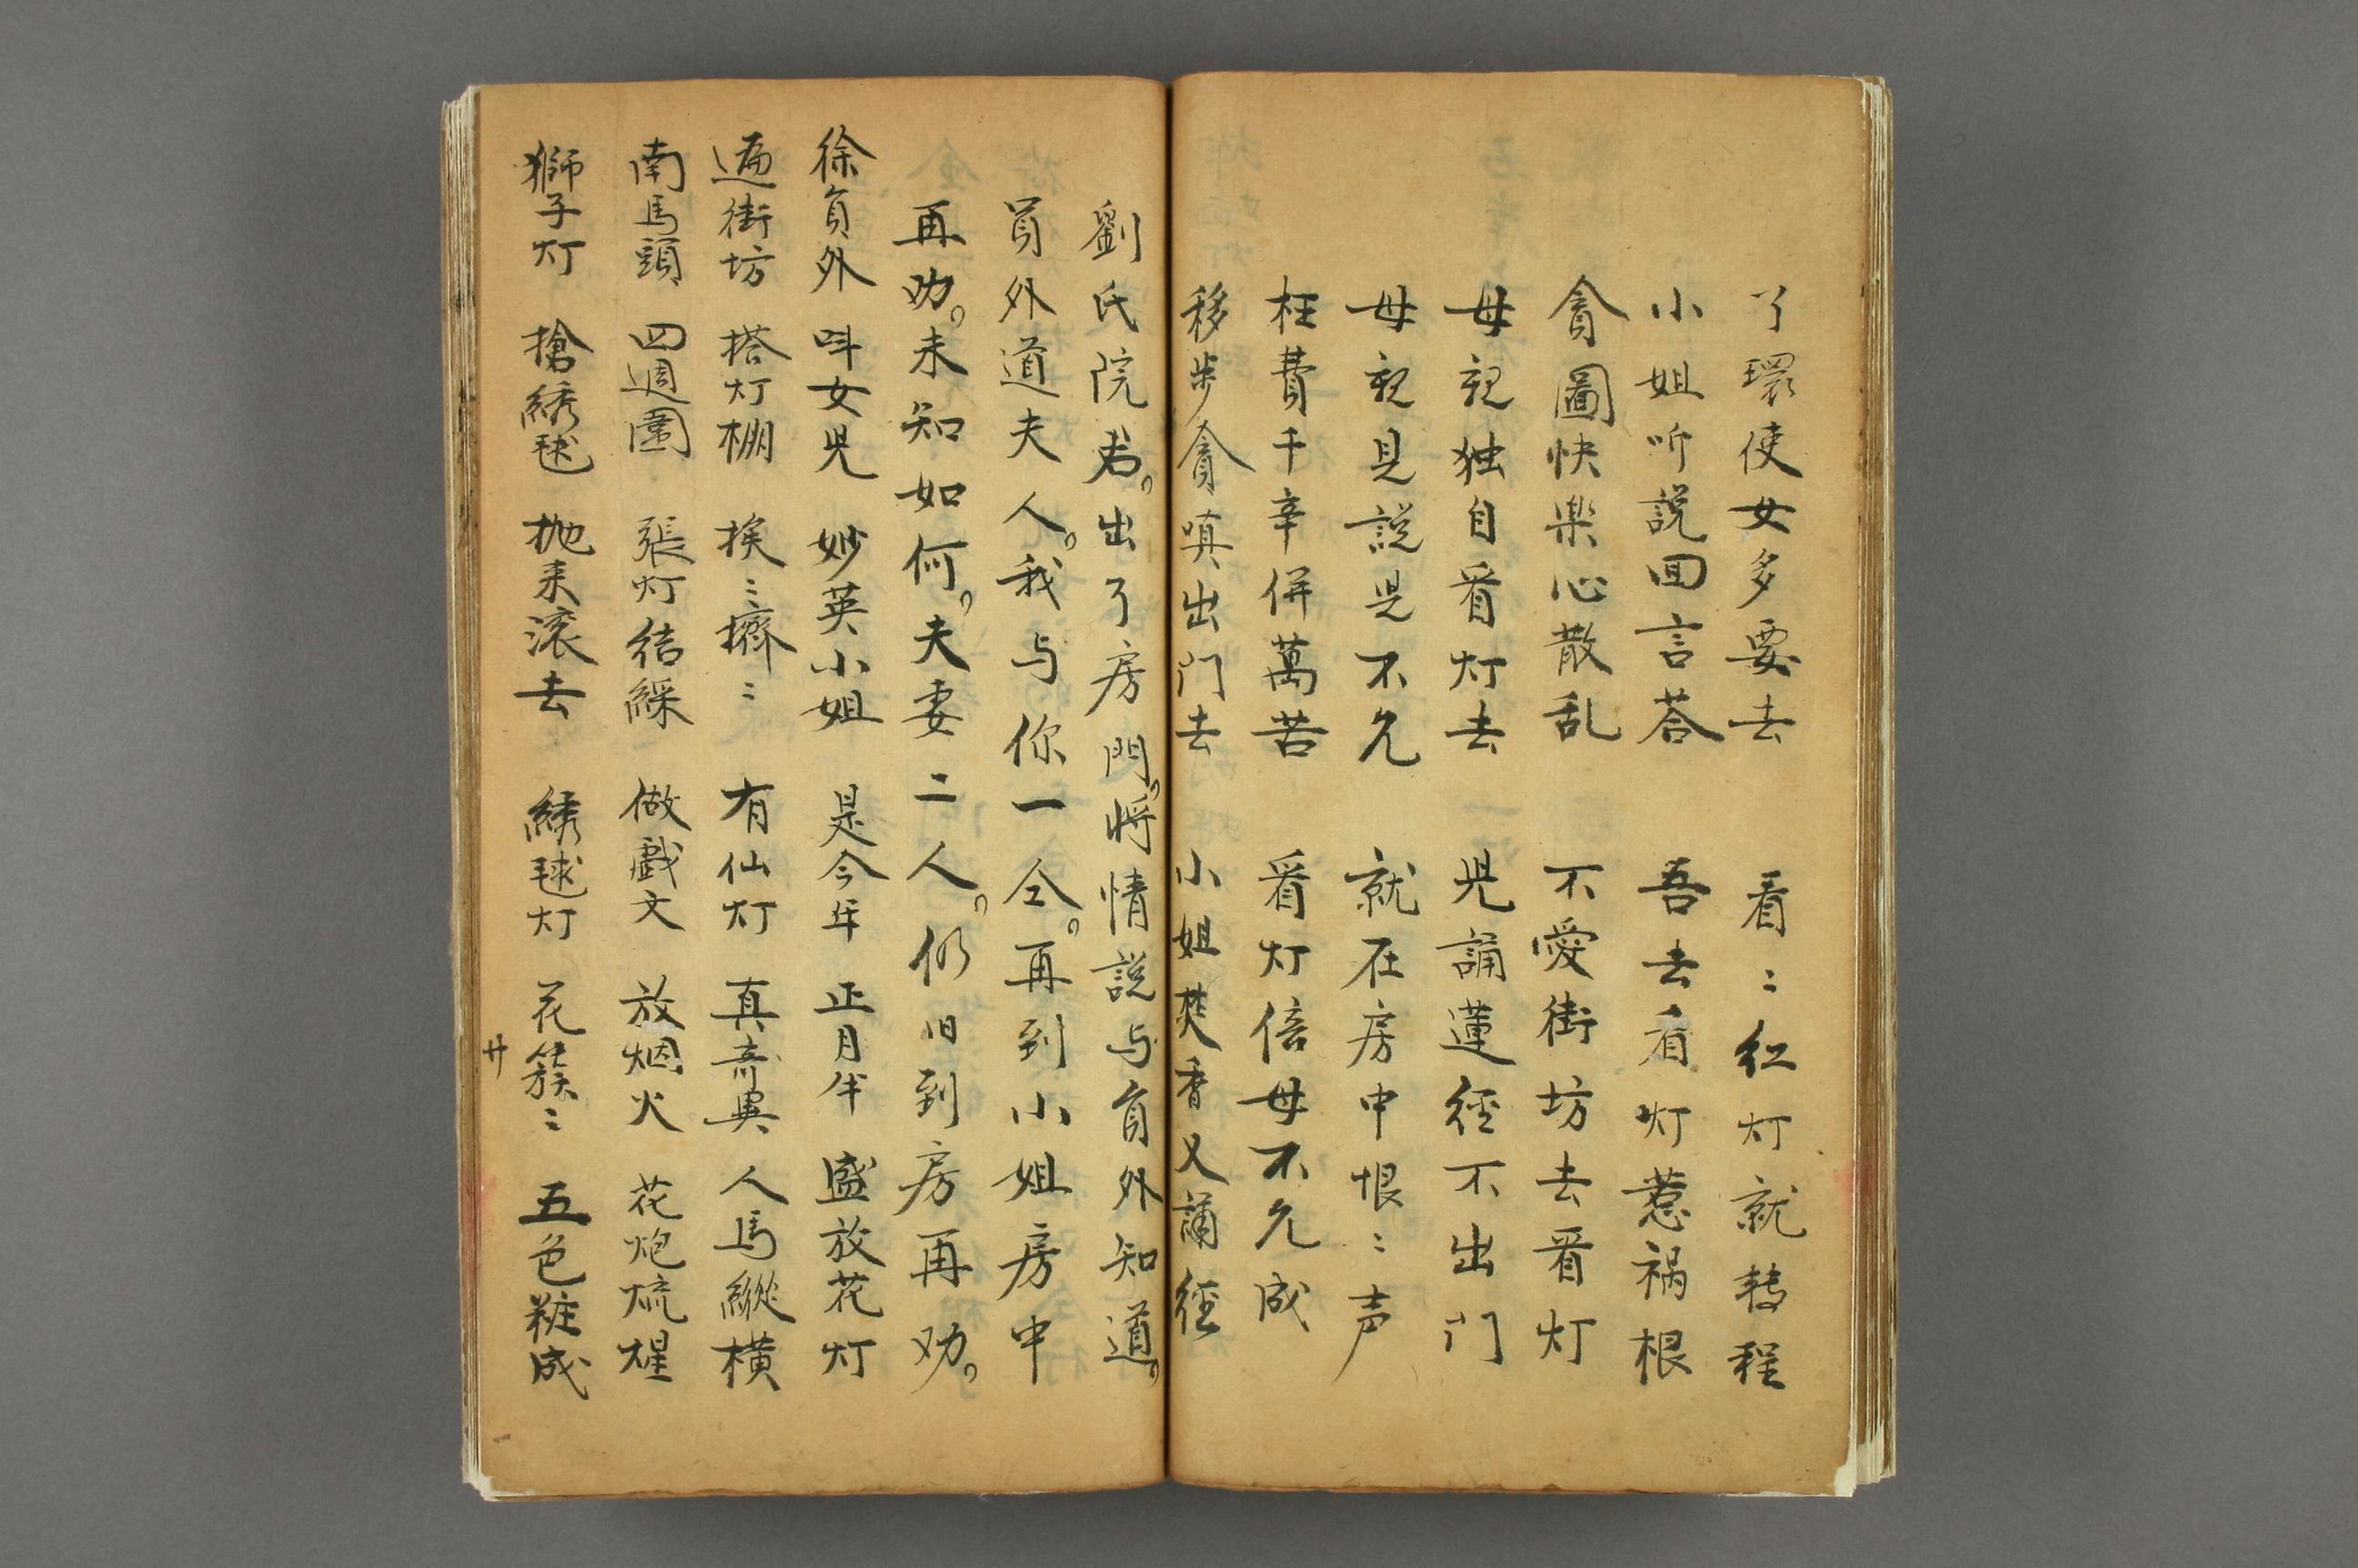 丫環使女多要去　看〻紅灯就轉程
小姐听説回言荅　吾去看灯惹祸根
貪圖快樂心散乱　不愛街坊去看灯
母親独自看灯去　児誦蓮徑不出门
母親見説児不允　就在房中恨〻声
枉費千辛併萬苦　看灯倍母不允成
移步貪嗔出门去　小姐焚香又誦徑
劉氏院君。出了房門。将情説与員外知道。
員外道夫人。我与你一仝。再到小姐房中
再劝。未知如何。夫妻二人。仍旧到房再劝。
徐員外　呌女児　妙英小姐　是今年　正月半　盛放花灯
遍街坊　搭灯棚　挨〻擠〻　有仙灯　真奇異　人馬縱横
南馬頭　四週圍　張灯结綵　做戲文　放烟火　花炮㷌煋
獅子灯　搶綉毬　抛来滚去　綉毬灯　花簇〻　五色粧成
廿